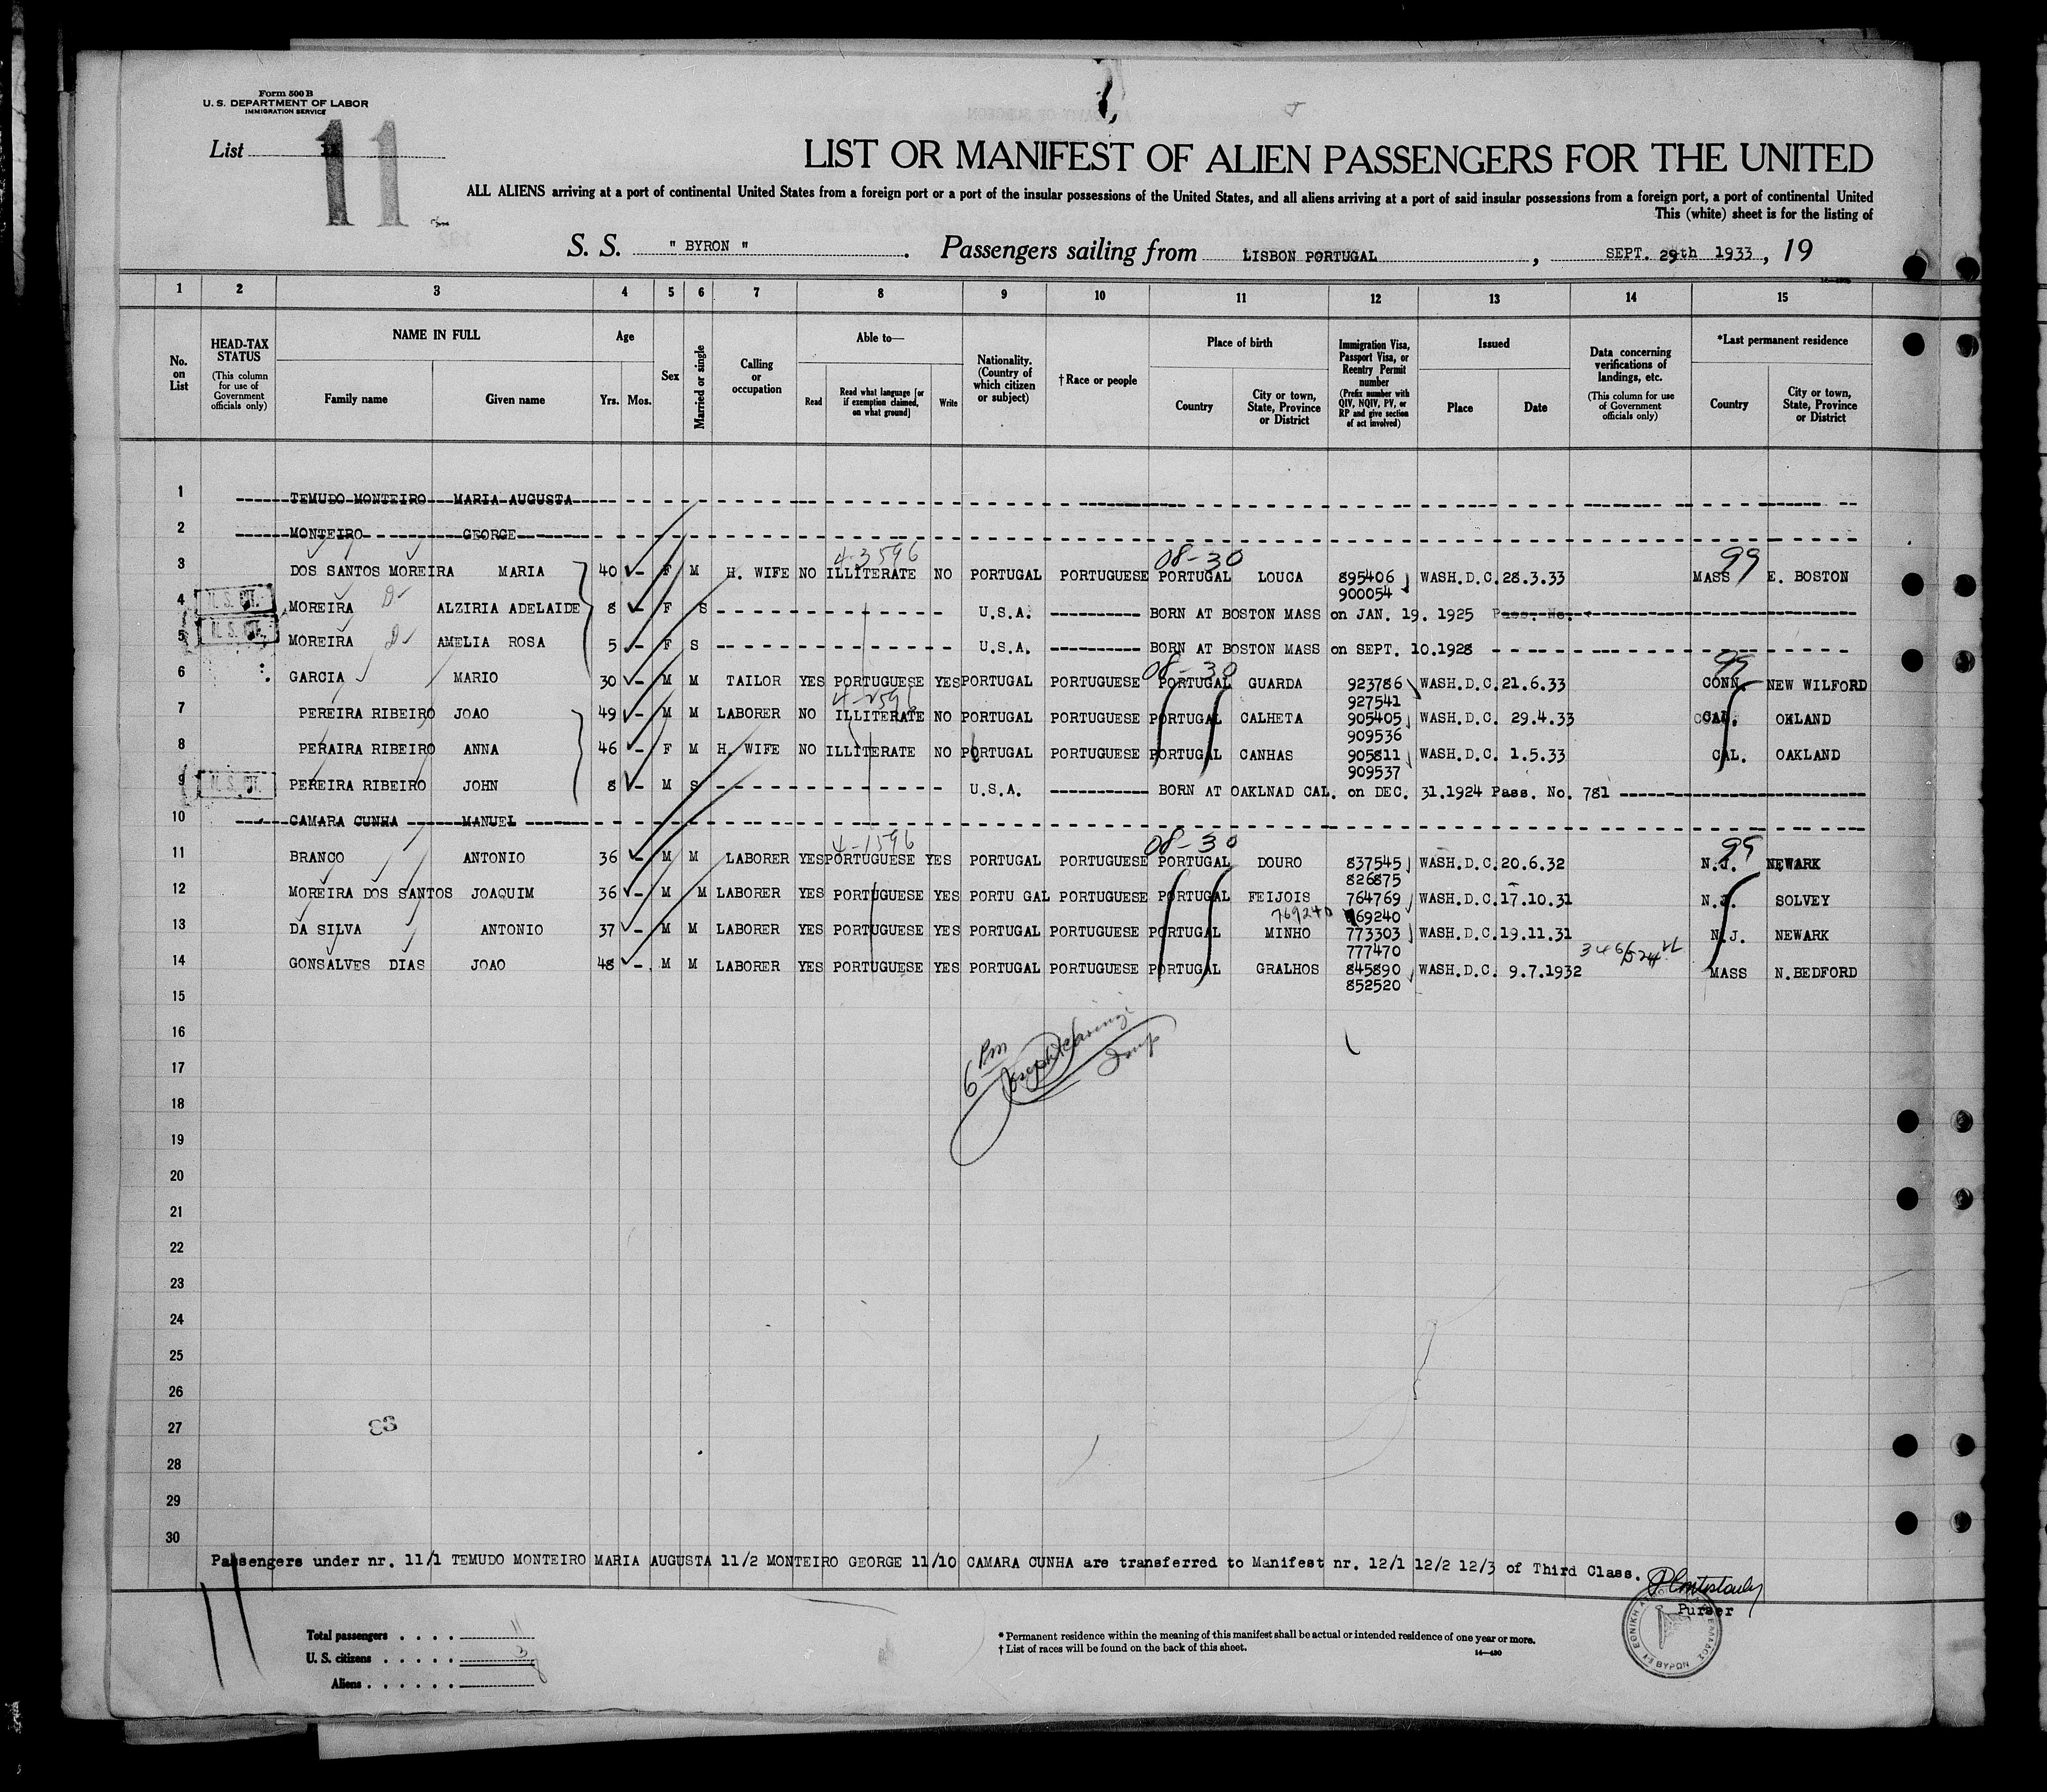 Form 500 B
U. S. DEPARTMENT OF LABOR
IMMIGRATION SERVICE
List 11
LIST OR MANIFEST OF ALIEN PASSENGERS FOR THE UNITED
ALL ALIENS arriving at a port of continental United States from a foreign port or a port of the insular possessions of the United States, and all aliens arriving at a port of said insular possessions from a foreign port, a port of continental United
This (white) sheet is for the listing of
S. S. " BYRON " . Passengers sailing from LISBON PORTUGAL , SEPT. 29th 1933 , 19
1 2 3 4 5 6 7 8 9 10 11 12 13 14 15
No. on List
HEAD-TAX STATUS (This column for use of Government officials only)
NAME IN FULL
Family name Given name
Age
Yrs. Mos.
Sex
Married or single
Calling or occupation
Able to—
Read Read what language [or if exemption claimed, on what ground] Write
Nationality. (Country of which citizen or subject)
†Race or people
Place of birth
Country City or town, State, Province or District
Immigration Visa, Passport Visa, or Reentry Permit number (Prefix number with QIV, NQIV, PV, or RP and give section of act involved)
Issued
Place Date
Data concerning verifications of landings, etc. (This column for use of Government officials only)
*Last permanent residence
Country City or town, State, Province or District
1 TEMUDO MONTEIRO MARIA AUGUSTA
2 MONTEIRO GEORGE
4-3596 08-30 99
3 DOS SANTOS MOREIRA MARIA 40 - F M H. WIFE NO ILLITERATE NO PORTUGAL PORTUGUESE PORTUGAL LOUCA 895406 WASH.D.C. 28.3.33 MASS E. BOSTON
900054
U. S. CIT.
4 MOREIRA ALZIRIA ADELAIDE 8 - F S U.S.A. BORN AT BOSTON MASS on JAN. 19. 1925 Pass. No.
U. S. CIT.
5 MOREIRA AMELIA ROSA 5 - F S U.S.A. BORN AT BOSTON MASS on SEPT. 10.1928
08-30 99
6 GARCIA MARIO 30 - M M TAILOR YES PORTUGUESE YES PORTUGAL PORTUGUESE PORTUGAL GUARDA 923786 WASH.D.C. 21.6.33 CONN. NEW WILFORD
927541
7 PEREIRA RIBEIRO JOAO 49 - M M LABORER NO ILLITERATE NO PORTUGAL PORTUGUESE PORTUGAL CALHETA 905405 WASH.D.C. 29.4.33 CAL. OKLAND
909536
8 PERAIRA RIBEIRO ANNA 46 - F M H. WIFE NO ILLITERATE NO PORTUGAL PORTUGUESE PORTUGAL CANHAS 905811 WASH.D.C. 1.5.33 CAL. OAKLAND
909537
U. S. CIT.
9 PEREIRA RIBEIRO JOHN 8 - M S U.S.A. BORN AT OAKLNAD CAL. on DEC. 31.1924 Pass. No. 781
10 CAMARA CUNHA MANUEL
4-1596 08-30 99
11 BRANCO ANTONIO 36 - M M LABORER YES PORTUGUESE YES PORTUGAL PORTUGUESE PORTUGAL DOURO 837545 WASH.D.C. 20.6.32 N.J. NEWARK
826875
12 MOREIRA DOS SANTOS JOAQUIM 36 - M M LABORER YES PORTUGUESE YES PORTU GAL PORTUGUESE PORTUGAL FEIJOIS 764769 WASH.D.C. 17.10.31 SOLVEY
769240 769240
13 DA SILVA ANTONIO 37 - M M LABORER YES PORTUGUESE YES PORTUGAL PORTUGUESE PORTUGAL MINHO 773303 WASH.D.C. 19.11.31 N.J. NEWARK
777470
14 GONSALVES DIAS JOAO 48 - M M LABORER YES PORTUGUESE YES PORTUGAL PORTUGUESE PORTUGAL GRALHOS 845890 WASH.D.C. 9.7.1932 MASS N.BEDFORD
852520
15
16
17
18
19
20
21
22
23
24
25
26
27
28
29
30
6 Pm
Passengers under nr. 11/1 TEMUDO MONTEIRO MARIA AUGUSTA 11/2 MONTEIRO GEORGE 11/10 CAMARA CUNHA are transferred to Manifest nr. 12/1 12/2 12/3 of Third Class.
Purser
Total passengers . . . . 11
U. S. citizens . . . . . 3
Aliens . . . . . . 8
* Permanent residence within the meaning of this manifest shall be actual or intended residence of one year or more.
† List of races will be found on the back of this sheet.
14—430